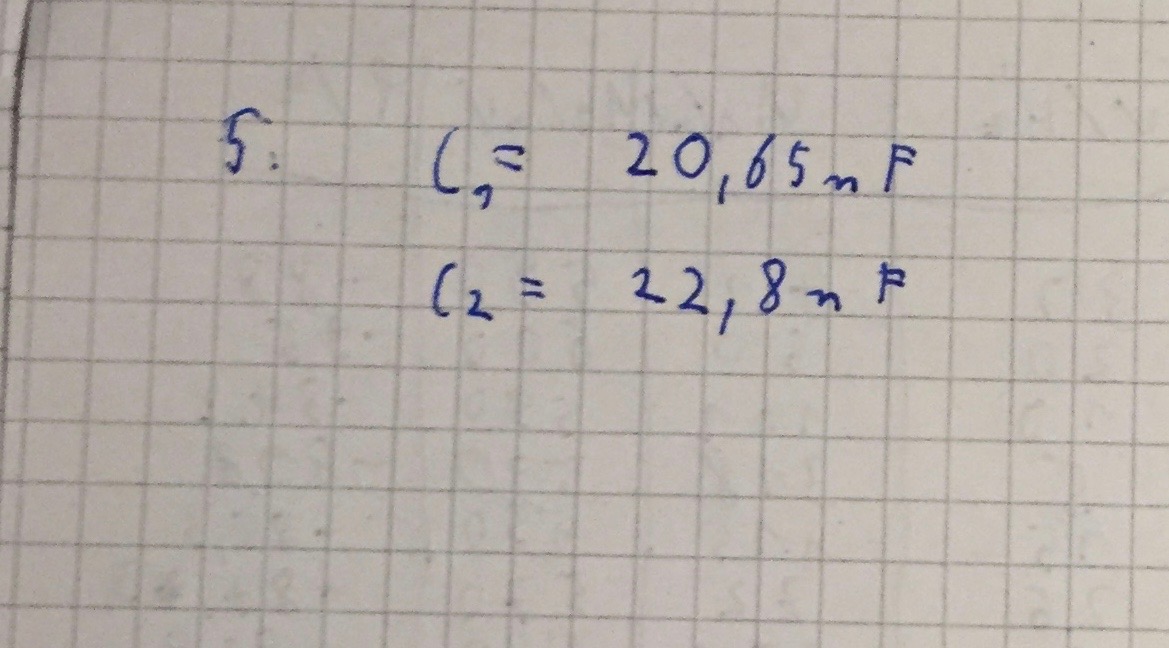 5. C₁ = 20,65 nF
C₂ = 22,8 nF